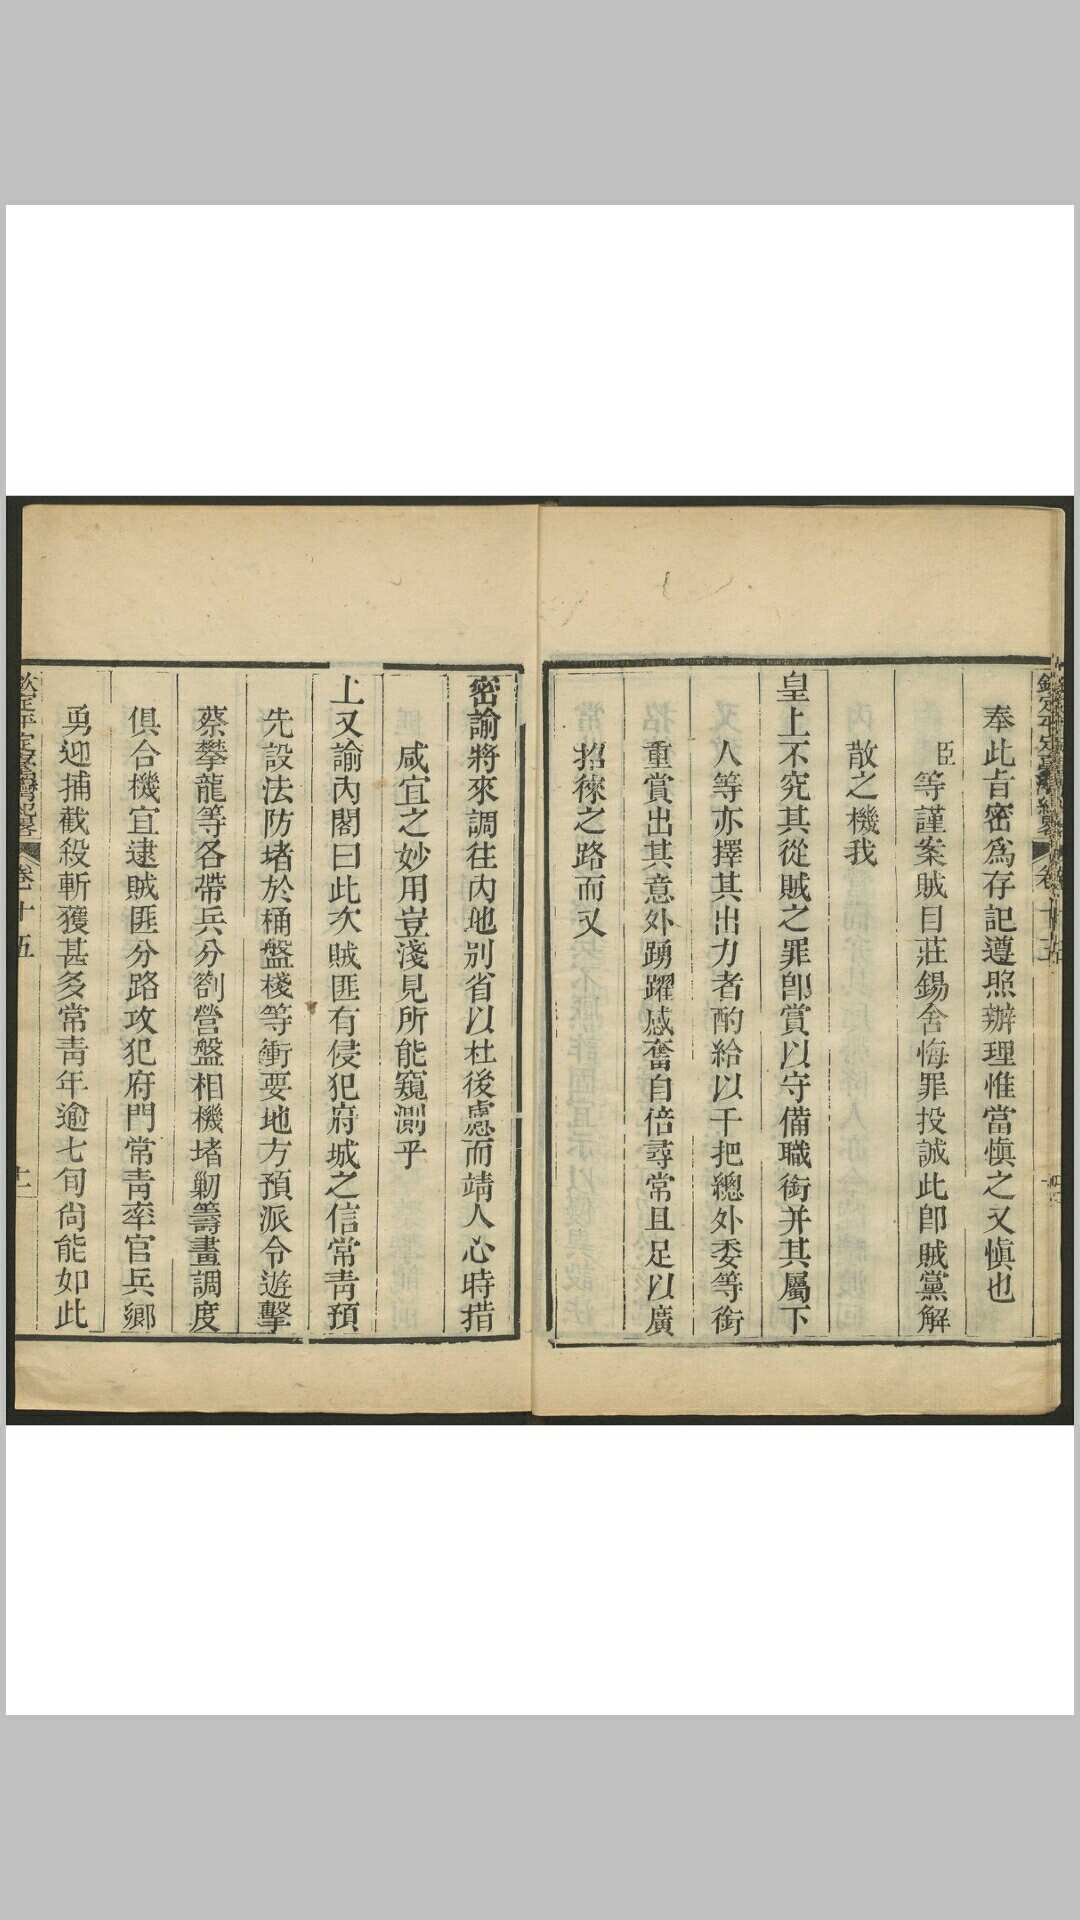 奉此旨密爲存記遵照辦理惟當愼之又愼也
臣等謹案賊目莊錫舍悔罪投誠此卽賊黨解
散之機我
皇上不究其從賊之罪卽賞以守備職銜幷其屬下
人等亦擇其出力者酌給以千把總外委等銜
重賞出其意外踴躍感奮自倍尋常且足以廣
招徠之路而又
密諭將來調往內地別省以杜後慮而靖人心時措
咸宜之妙用豈淺見所能窺測乎
上又諭內閣曰此次賊匪有侵犯府城之信常靑預
先設法防堵於桶盤棧等衝要地方預派令遊擊
蔡攀龍等各帶兵分劄營盤相機堵勦籌畫調度
俱合機宜逮賊匪分路攻犯府門常靑率官兵鄉
勇迎捕截殺斬獲甚多常靑年逾七旬尙能如此
欽定平定臺灣紀畧 卷十五